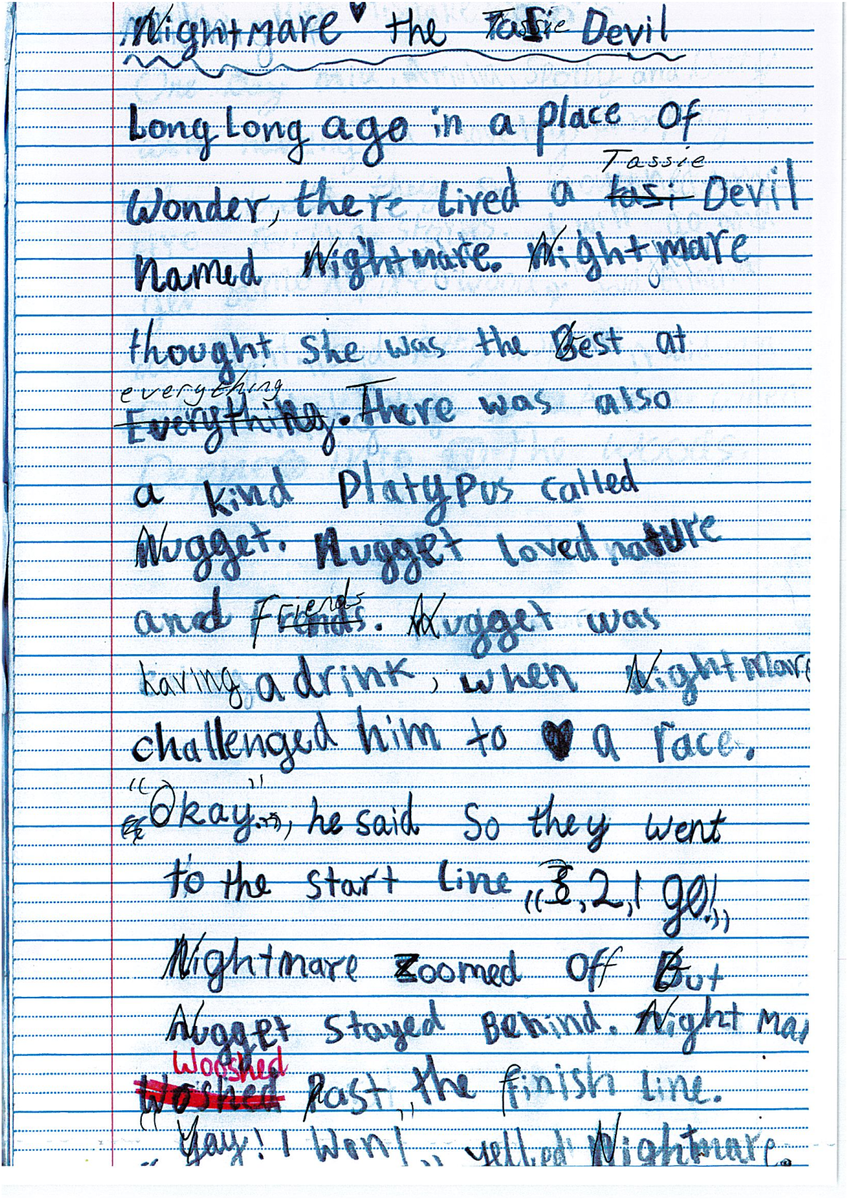 Nightmare the Tassie Devil
Long Long ago in a place Of
Wonder, there lived a Tassie Devil
Named Nightmare. Nightmare
thought She was the Best at
everything. There was also
a kind Platypus called
Nugget. Nugget loved nature
and friends. Nugget was
having a drink, when Nightmare
challenged him to a race.
"Okay", he said So they went
to the Start line "3,2,1 go!"
Nightmare zoomed Off But
Nugget Stayed Behind. Night mar
Wooshed Past the finish line.
"Yay! I Won!" yelled Nightmare.